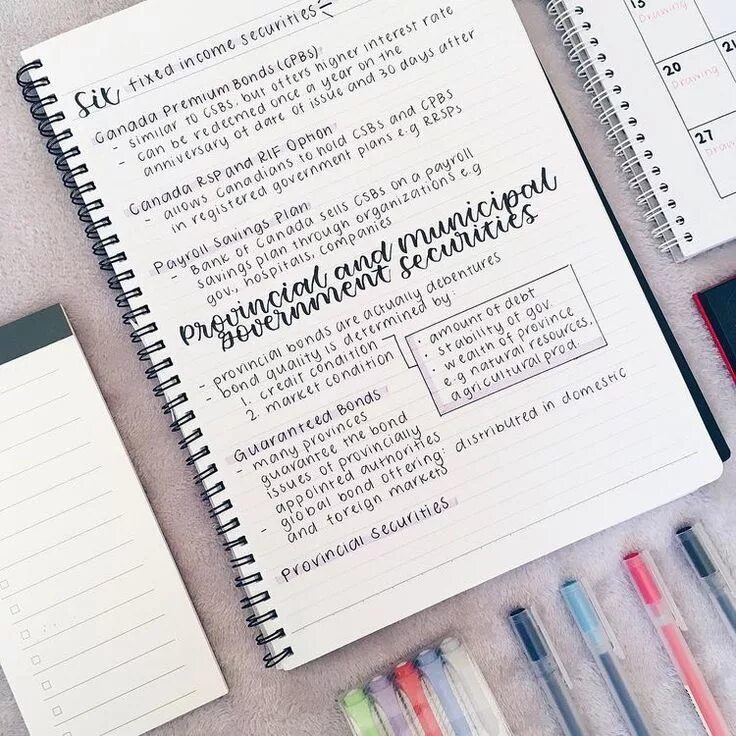 six fixed income securities
Canada Premium Bonds (CPBs)
- similar to CSBs, but offers higher interest rate
- can be redeemed once a year on the
anniversary of date of issue and 30 days after
Canada RSP and RIF Option
- allows Canadians to hold CSBs and CPBs
in registered government plans e.g RRSPs
Payroll Savings Plan
- Bank of Canada sells CSBs on a payroll
savings plan through organizations e.g
gov., hospitals, companies
provincial and municipal
government securities
- provincial bonds are actually debentures
- bond quality is determined by:
1. credit condition
2. market condition
• amount of debt
• stability of gov.
• wealth of province
e.g natural resources,
agricultural prod.
Guaranteed Bonds
- many provinces
guarantee the bond
issues of provincially
appointed authorities
- global bond offering: distributed in domestic
and foreign markets
Provincial securities
13
Drawing
20
Drawing
21
27
Drawing